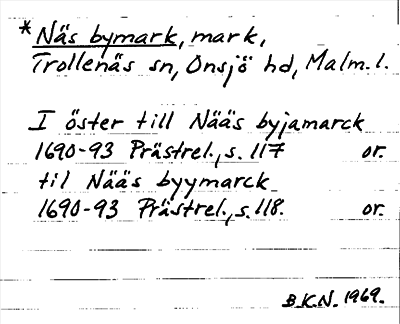 *Näs bymark, mark,
Trollenäs sn, Onsjö hd, Malm. l.
I öster till Nääs byjamarck
1690-93 Prästrel., s. 117 or.
til Nääs byymarck
1690-93 Prästrel., s. 118. or.
B.K.N. 1969.